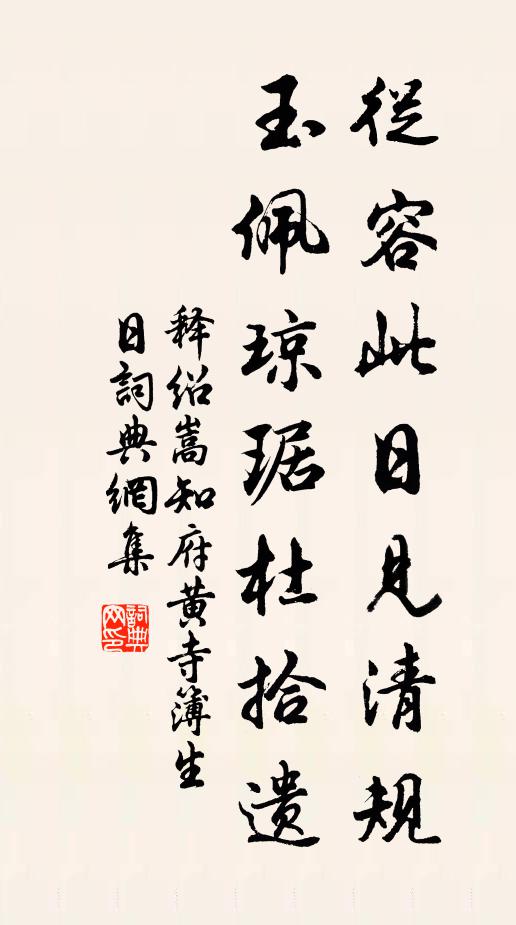 從容此日見清規
玉佩琼琚杜拾遗
释绍嵩知府黄寺簿生
日詞典網集
詞典网印